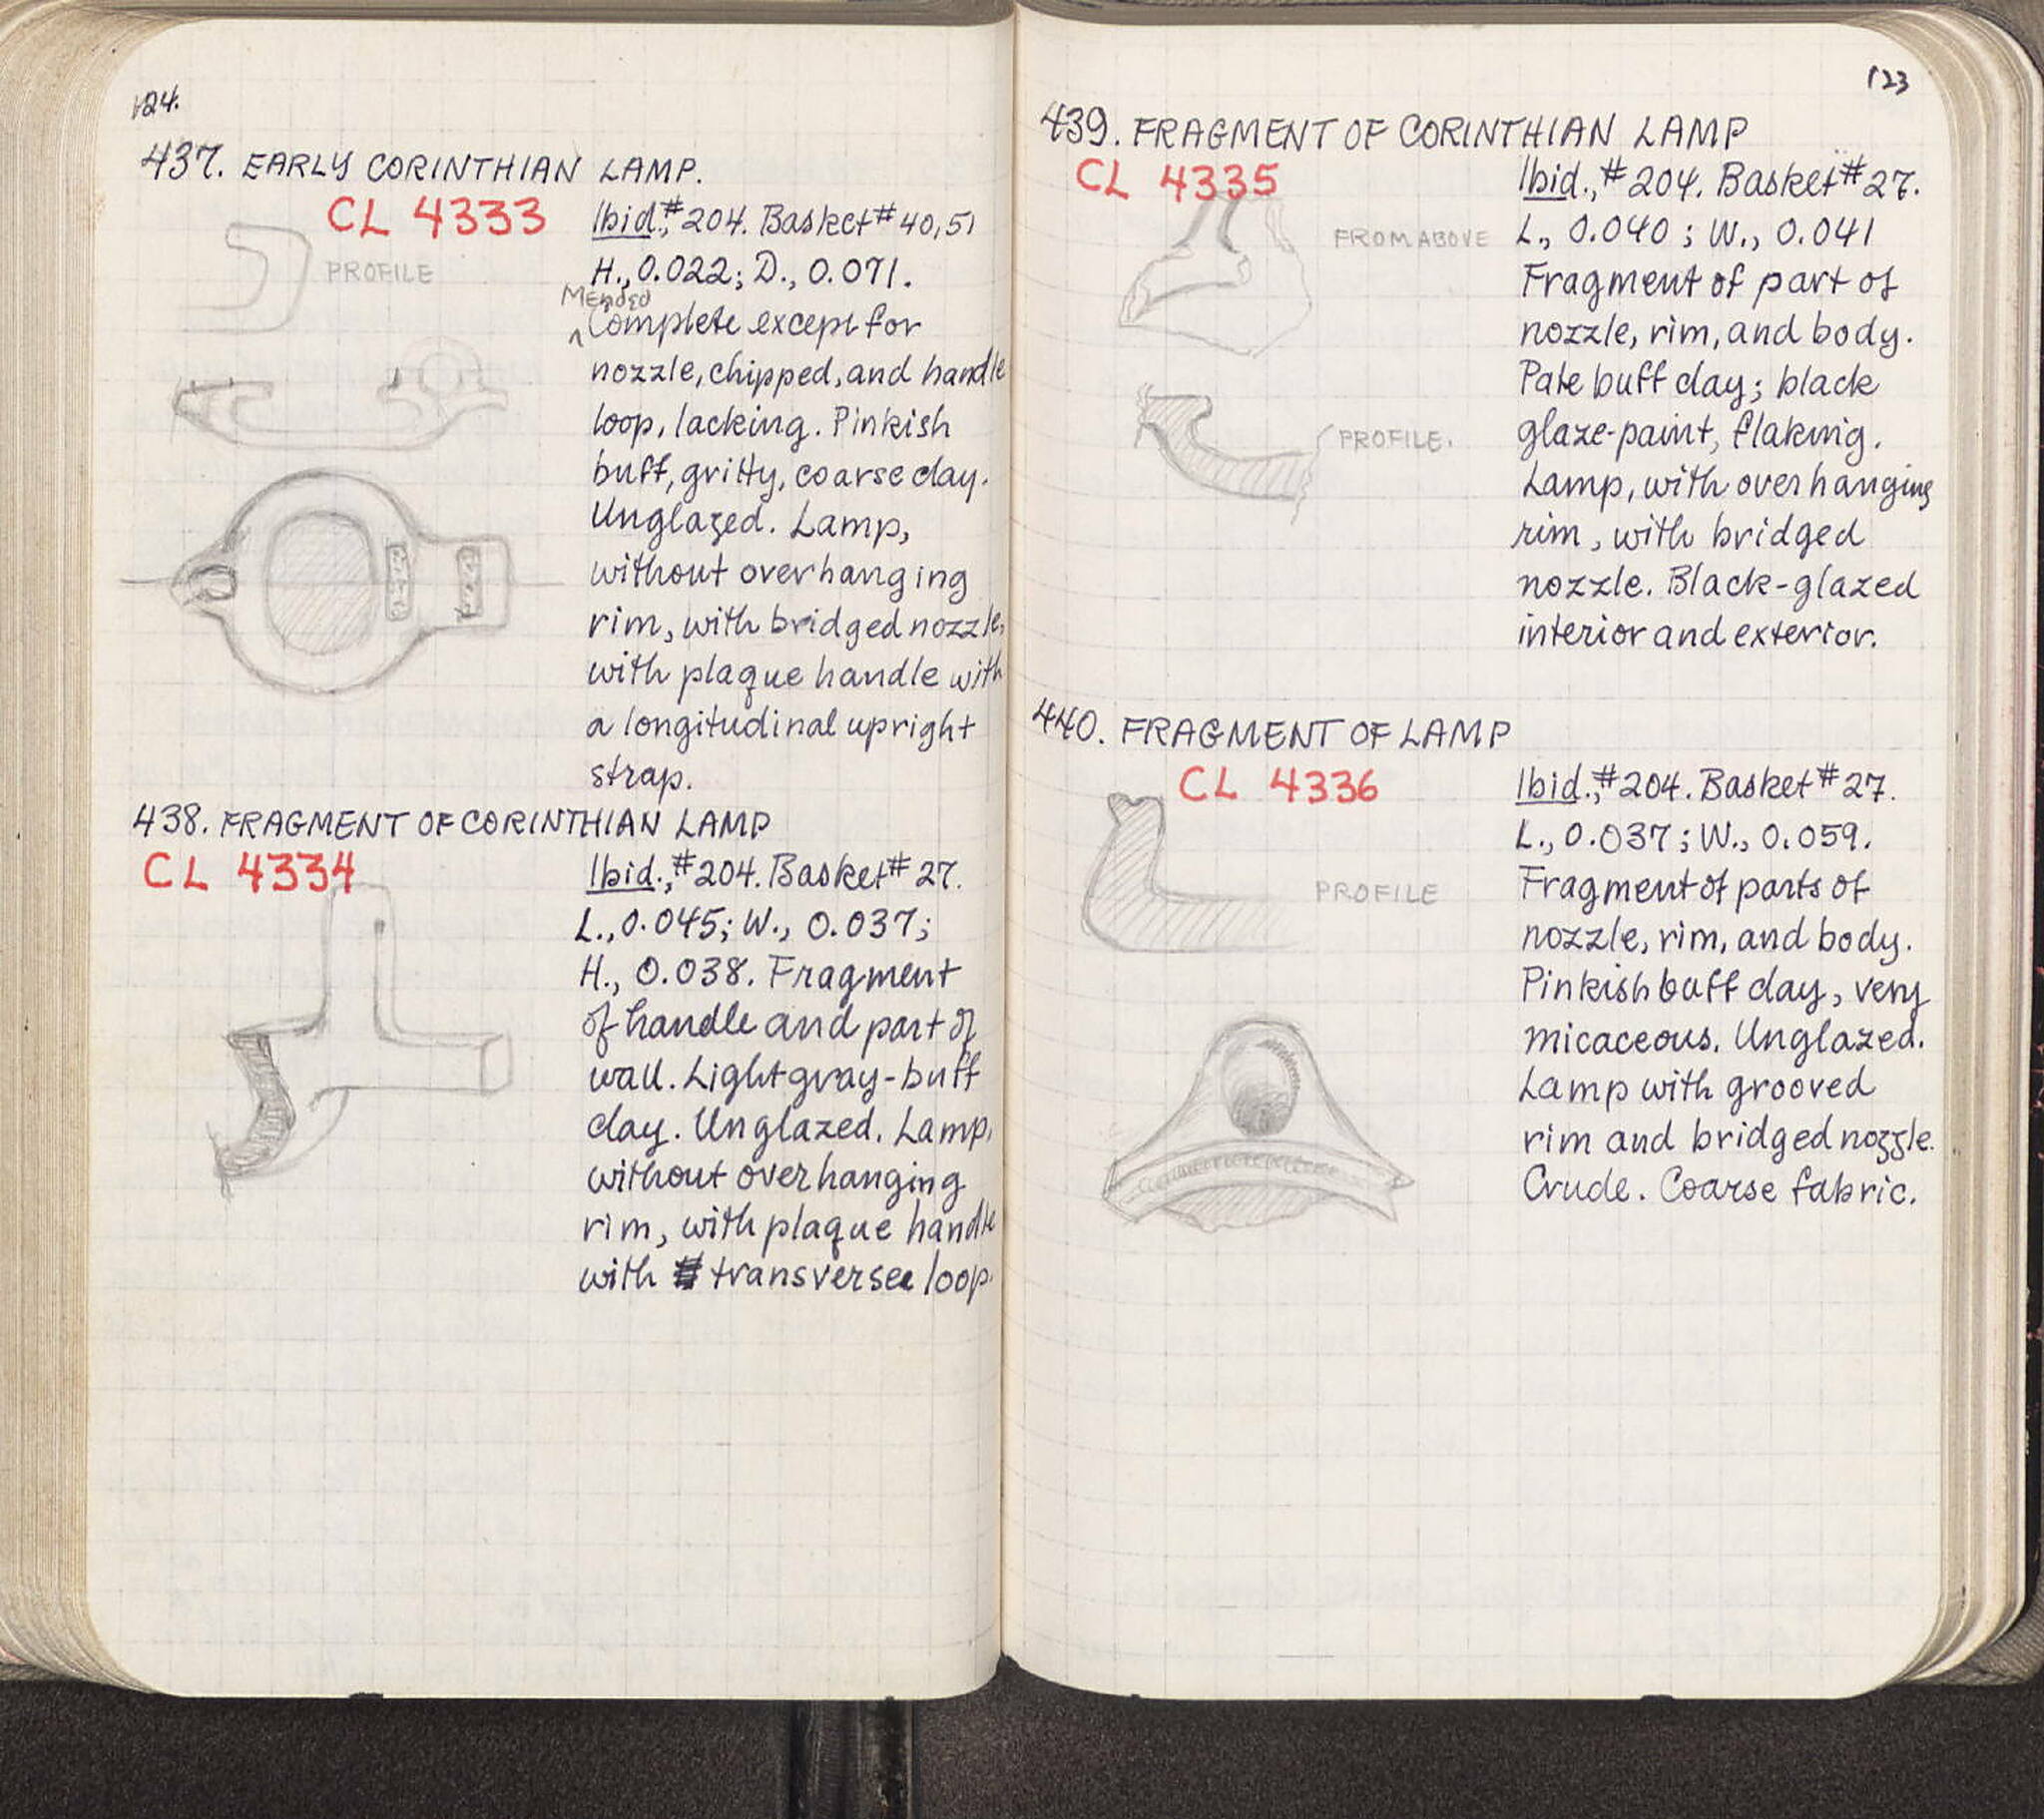 124.
437. EARLY CORINTHIAN LAMP.
CL 4333
PROFILE
Ibid., #204. Basket #40,51
H., 0.022; D., 0.071.
Mended
^ Complete except for
nozzle, chipped, and handle
loop, lacking. Pinkish
buff, gritty, coarse clay.
Unglazed. Lamp,
without overhanging
rim, with bridged nozzle,
with plaque handle with
a longitudinal upright
strap.
438. FRAGMENT OF CORINTHIAN LAMP
CL 4334
Ibid., #204. Basket #27.
L., 0.045; W., 0.037;
H., 0.038. Fragment
of handle and part of
wall. Light gray-buff
clay. Unglazed. Lamp,
without overhanging
rim, with plaque handle
with transverse loop.
123
439. FRAGMENT OF CORINTHIAN LAMP
CL 4335
FROM ABOVE
PROFILE.
Ibid., #204. Basket #27.
L., 0.040; W., 0.041
Fragment of part of
nozzle, rim, and body.
Pale buff clay; black
glaze-paint, flaking.
Lamp, with overhanging
rim, with bridged
nozzle. Black-glazed
interior and exterior.
440. FRAGMENT OF LAMP
CL 4336
PROFILE
Ibid., #204. Basket #27.
L., 0.037; W., 0.059.
Fragment of parts of
nozzle, rim, and body.
Pinkish buff clay, very
micaceous. Unglazed.
Lamp with grooved
rim and bridged nozzle.
Crude. Coarse fabric.